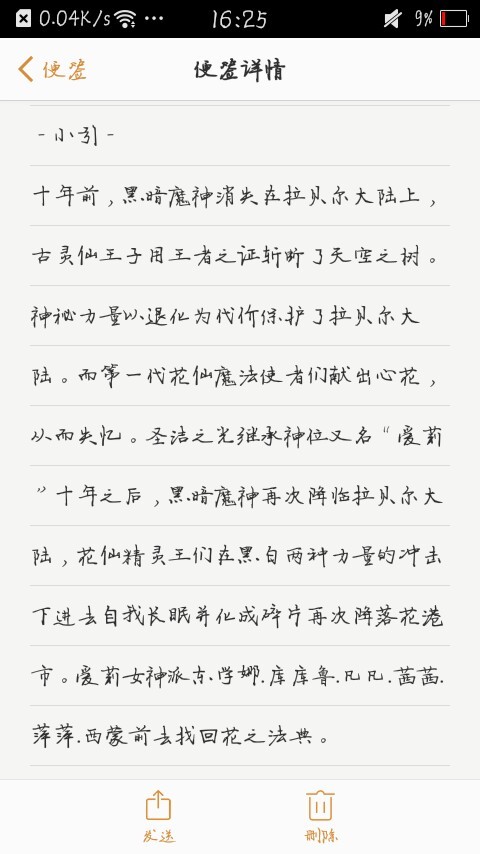 0.04K/s ... 16:25 9%
便签 便签详情
-小引-
十年前，黑暗魔神消失在拉贝尔大陆上，
古灵仙王子用王者之证斩断了天空之树。
神秘力量以退化为代价保护了拉贝尔大
陆。而第一代花仙魔法使者们献出心花，
从而失忆。圣洁之光继承神位又名“爱莉
”十年之后，黑暗魔神再次降临拉贝尔大
陆，花仙精灵王们在黑白两种力量的冲击
下进去自我长眠并化成碎片再次降落花港
市。爱莉女神派东.学娜.库库鲁.凡凡.茜茜.
萍萍.西蒙前去找回花之法典。
发送 删除